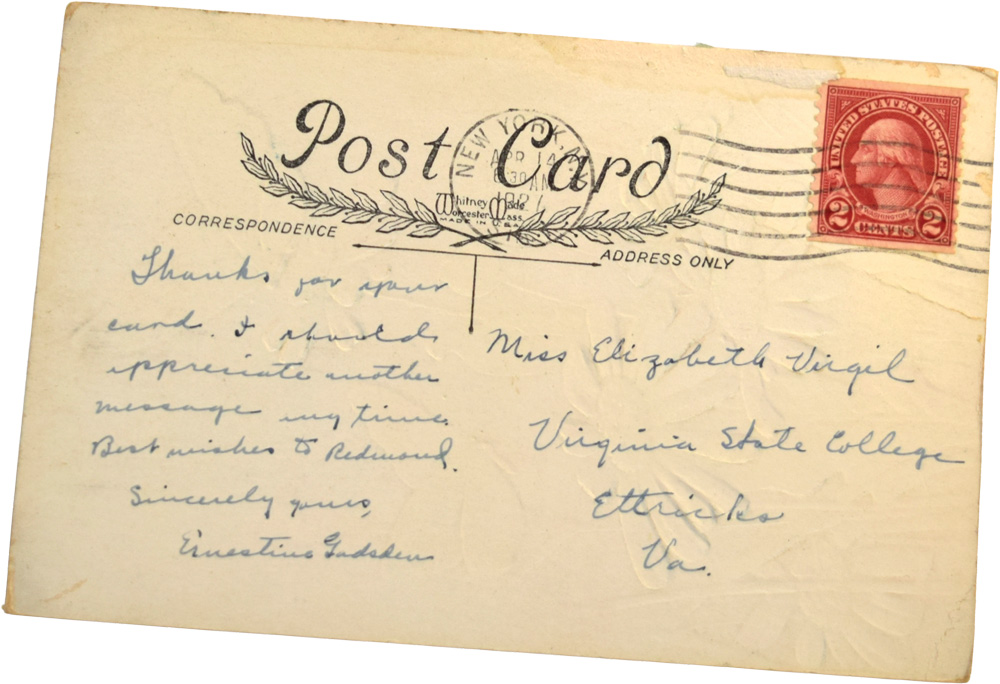 Post Card
NEW YORK, N.Y.
APR 14
8 30 AM
1927
Whitney Made
Worcester Mass.
MADE IN U.S.A.
UNITED STATES POSTAGE
WASHINGTON
2 CENTS 2
CORRESPONDENCE
ADDRESS ONLY
Thanks for your
card. I should
appreciate another
message any time.
Best wishes to Redmond.
Sincerely yours,
Ernestine Gadsden
Miss Elizabeth Virgil
Virginia State College
Ettricks
Va.